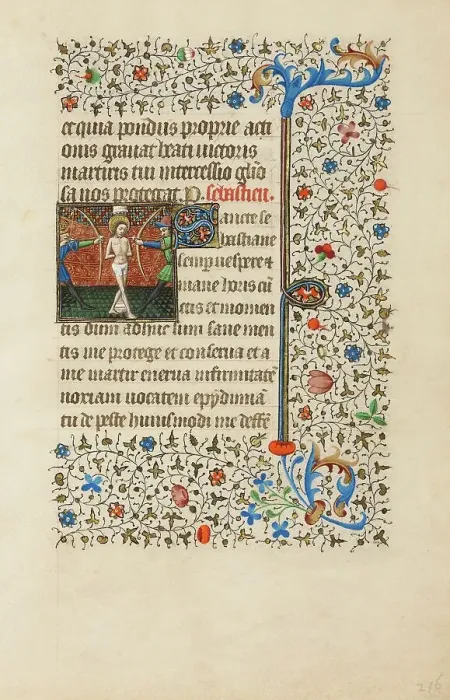 et quia pondus proprie acti
onis gravat beati victoris
martiris tui intercessio glio
sa nos protegat. P. sebastien.
Sancte se
bastiane
semp vespere et
mane horis cū
ctis et momen
tis dum adhuc sum sane men
tis me protege et conserva et a
me martir enerva infirmitatē
noxiam vocatem epydimiā
tu de peste huiusmodi me deffē
216